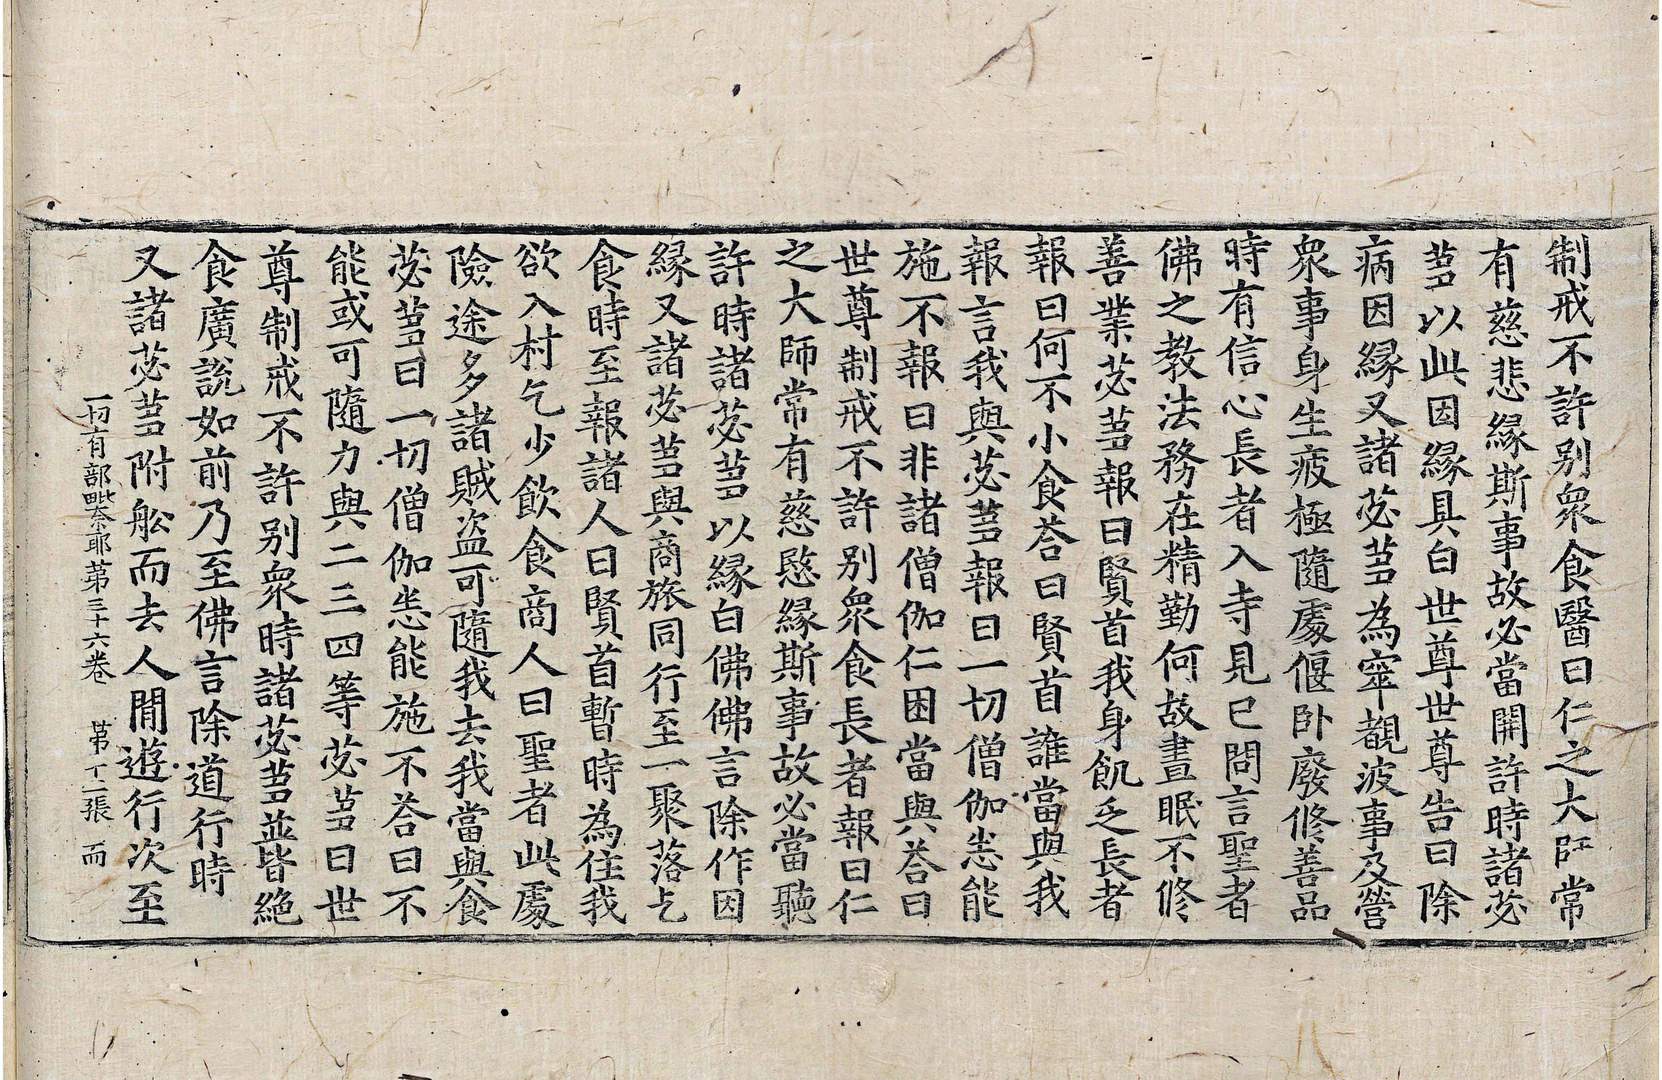 制戒不許别衆食醫曰仁之大師常
有慈悲縁斯事故必當開許時諸苾
蒭以此因縁具白世尊世尊告曰除
病因縁又諸苾蒭為窣覩波事及營
衆事身生疲極隨處偃卧廢修善品
時有信心長者入寺見已問言聖者
佛之教法務在精勤何故晝眠不修
善業苾蒭報曰賢首我身飢乏長者
報曰何不小食荅曰賢首誰當與我
報言我與苾蒭報曰一切僧伽悉能
施不報曰非諸僧伽仁困當與荅曰
世尊制戒不許别衆食長者報曰仁
之大師常有慈愍縁斯事故必當聽
許時諸苾蒭以縁白佛佛言除作因
縁又諸苾蒭與商旅同行至一聚落乞
食時至報諸人曰賢首暫時為住我
欲入村乞少飲食商人曰聖者此處
險途多諸賊盗可隨我去我當與食
苾蒭曰一切僧伽悉能施不荅曰不
能或可隨力與二三四等苾蒭曰世
尊制戒不許别衆時諸苾蒭並皆絶
食廣説如前乃至佛言除道行時
又諸苾蒭附舩而去人間遊行次至
一切有部毗奈耶第三十六卷 第十二張 而